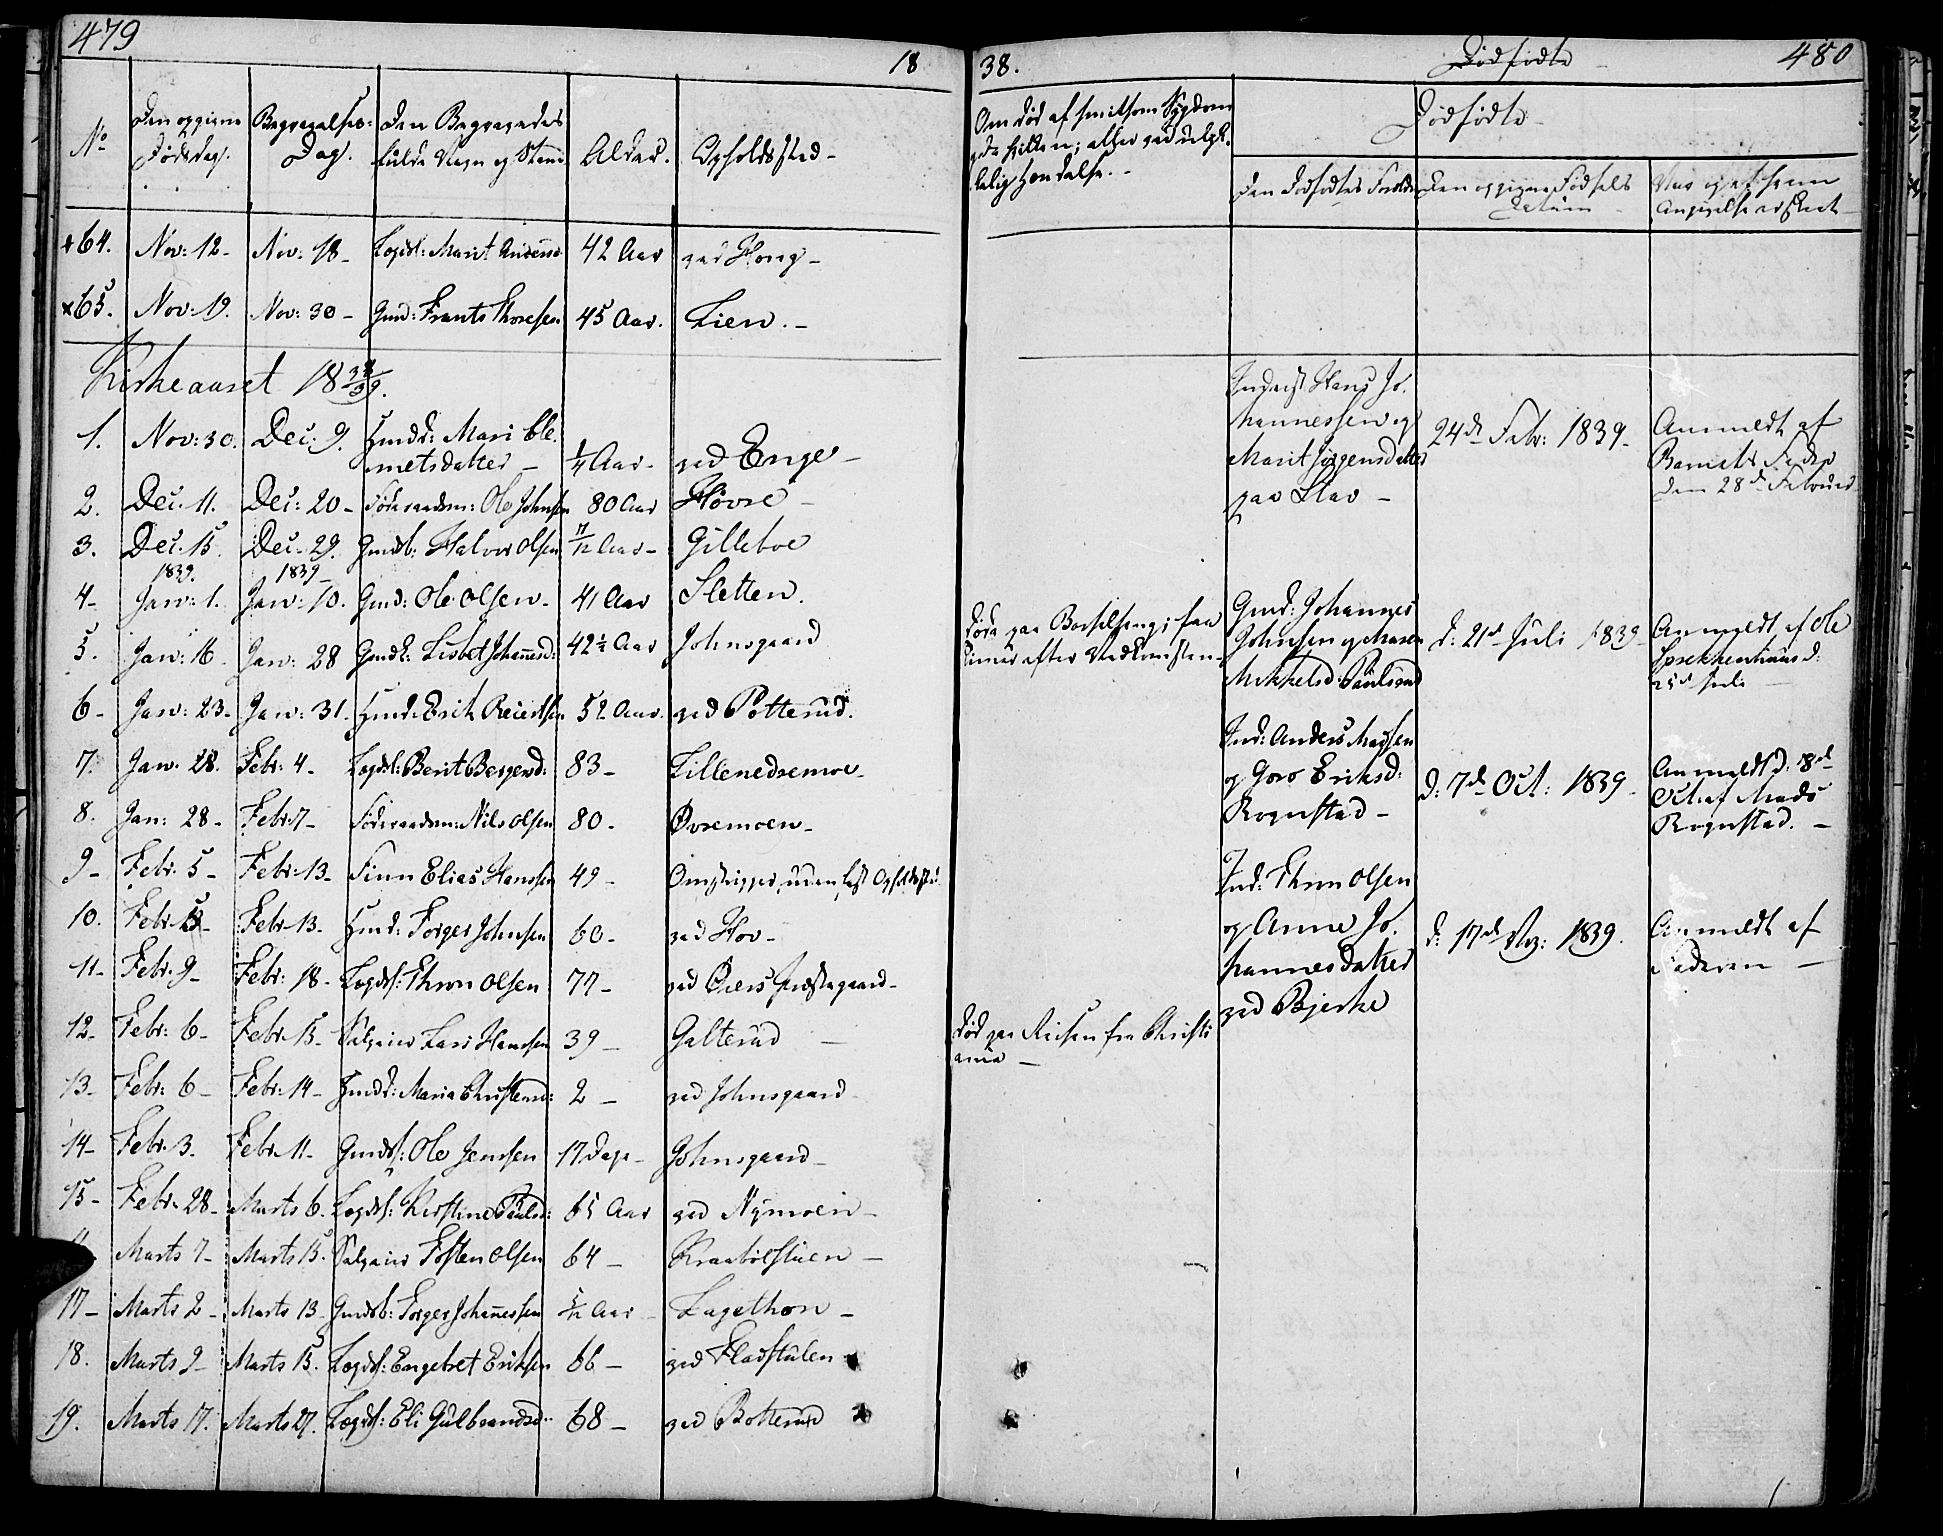 479
18
No
Den opgivne Dødsdag.
Begravelses-Dag.
Den Begravedes fulde Navn og Stand
Alder.
Opholdssted
+64. Nov: 12- Nov: 18- Lægdsl: Marit Andersd 42 Aar ved Hong-
×65. Nov: 19. Nov: 30- Gmd: Frants Thoresen 45 Aar. Lien.-
Kirkeaaret 18 38/39.
1. Nov: 30. Dec: 9. Hmdd: Mari Cle-
metsdatter - 1/4 Aar- ved Enge-
2. Dec. 11. Dec: 20- Føderaadsm: Ole Johnsen 80 Aar Høvre-
3. Dec. 15. Dec. 29. Gmdsb: Halvor Olsen 7/12 Aar- Gilleboe
1839. 1839-
4- Jan: 1. Jan: 10. Gmd: Ole Olsen- 41 Aar Sletten.
5. Jan: 16- Jan: 28 Gmdk: Lisbet Johansd: 42½ Aar Johnsgaard
6- Jan: 23- Jan: 31. Hmd: Erik Reiersen 52 Aar. ved Potterud.
7. Jan. 28. Febr: 4- Lægdsl: Berit Bergersd: 83- Lillenedremoe-
8. Jan: 28- Febr: 7- Føderaadsm: Nils Olsen 80- Øvremoen-
9- Febr. 5- Febr: 13- Finn Elias Hanssen 49- Omstripper, uden fast Opholdssted
10. Febr. 5 Febr. 13- Hmd: Torger Johnsen 60- ved Hov-
11- Febr. 9- Febr: 18- Lægdsl: Thron Olsen 77- ved Øiers Præstegaard-
12- Febr: 6- Febr: 15- Selveier Lars Hansen 39- Galterud-
13- Febr: 6- Febr: 14- Hmdd: Maria Christensd: 2- ved Johnsgaard-
14- Febr. 3- Febr. 11- Gmds: Ole Jensen 17 Dage- Johnsgaard-
15- Febr. 28- Marts 6- Lægdsl: Kirstine Paulsd: 65 Aar ved Nymoen-
Marts 7- Marts 15. Selveier Tosten Olsen 64- Kraabølstuen-
17- Marts 2- Marts 13- Gmdsb: Torger Johannesen 5/12 Aar- Lagethon-
18. Marts 9- Marts 15. Lægdsl: Engebret Eriksen 66- ved Fladstulen
19. Marts 17. Marts 27. Lægdsl: Eli Gulbrandsd: 68- ved Botterud
38.
Dødfødte-
480
Om død af smitsom Sygdom
og da hvilken; eller ved ulyk-
kelig Hændelse.-
Dødfødte-
Den Dødfødtes Forældre
Den opgivne Fødsels Datum
Naar og af hvem Angivelse er skeet-
Inderst Hans Jo-
hannessen og
Marit Jørgensdatter
paa Stav-
24de Febr: 1839-
Anmeldt af
Barnets Fader
den 28de Februar
døde paa Barselseng; faa
Timer efter Nedkomsten-
Gmd: Johannes
Johnsen og Maren
Mikkelsd: Paulsrud
d: 21de Juli 1839-
Anmeldt af Ole
d:
25de Juli-
Ind: Anders Madsen
og Goro Eriksd:
Rognstad-
d: 7de Oct: 1839-
Anmeldt d: 8de
Oct. af Mads
Rognstad.-
Ind: Thron Olsen
og Anne Jo-
hannesdatter
ved Bjerke
d: 17de Nov: 1839.
Anmeldt af
Faderen-
død paa Reisen fra Christi-
ania-